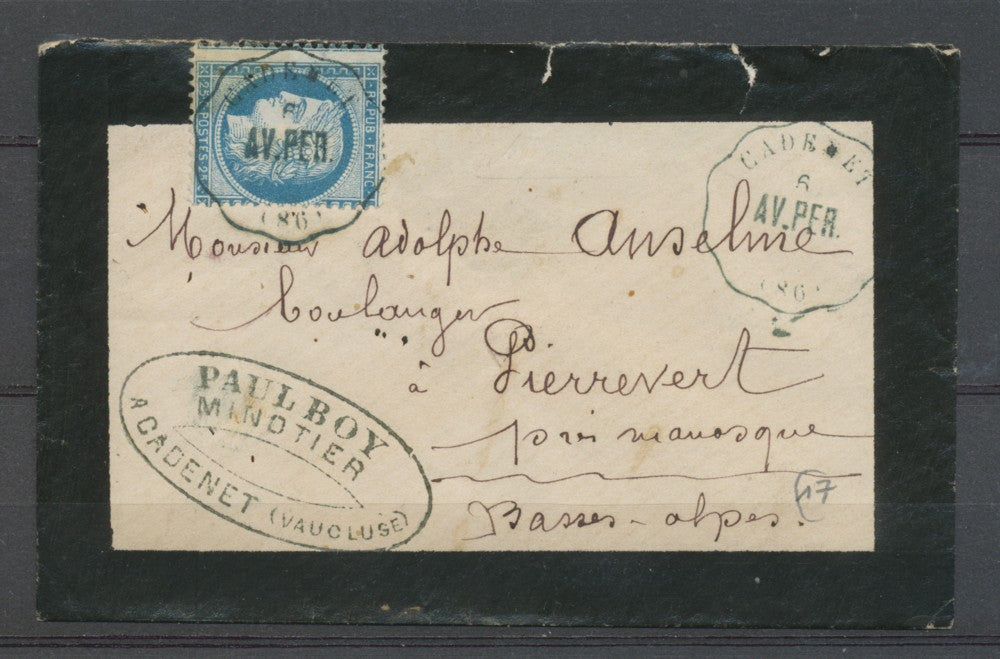 25 POSTES 25
REPUB. FRANC
CADENET
6
AV.PER.
(86)
CADENET
6
AV.PER.
(86)
Monsieur Adolphe Anselme
boulanger
à Pierrevert
près manosque
Basses-alpes.
17
PAUL BOY
MINOTIER
A CADENET (VAUCLUSE)